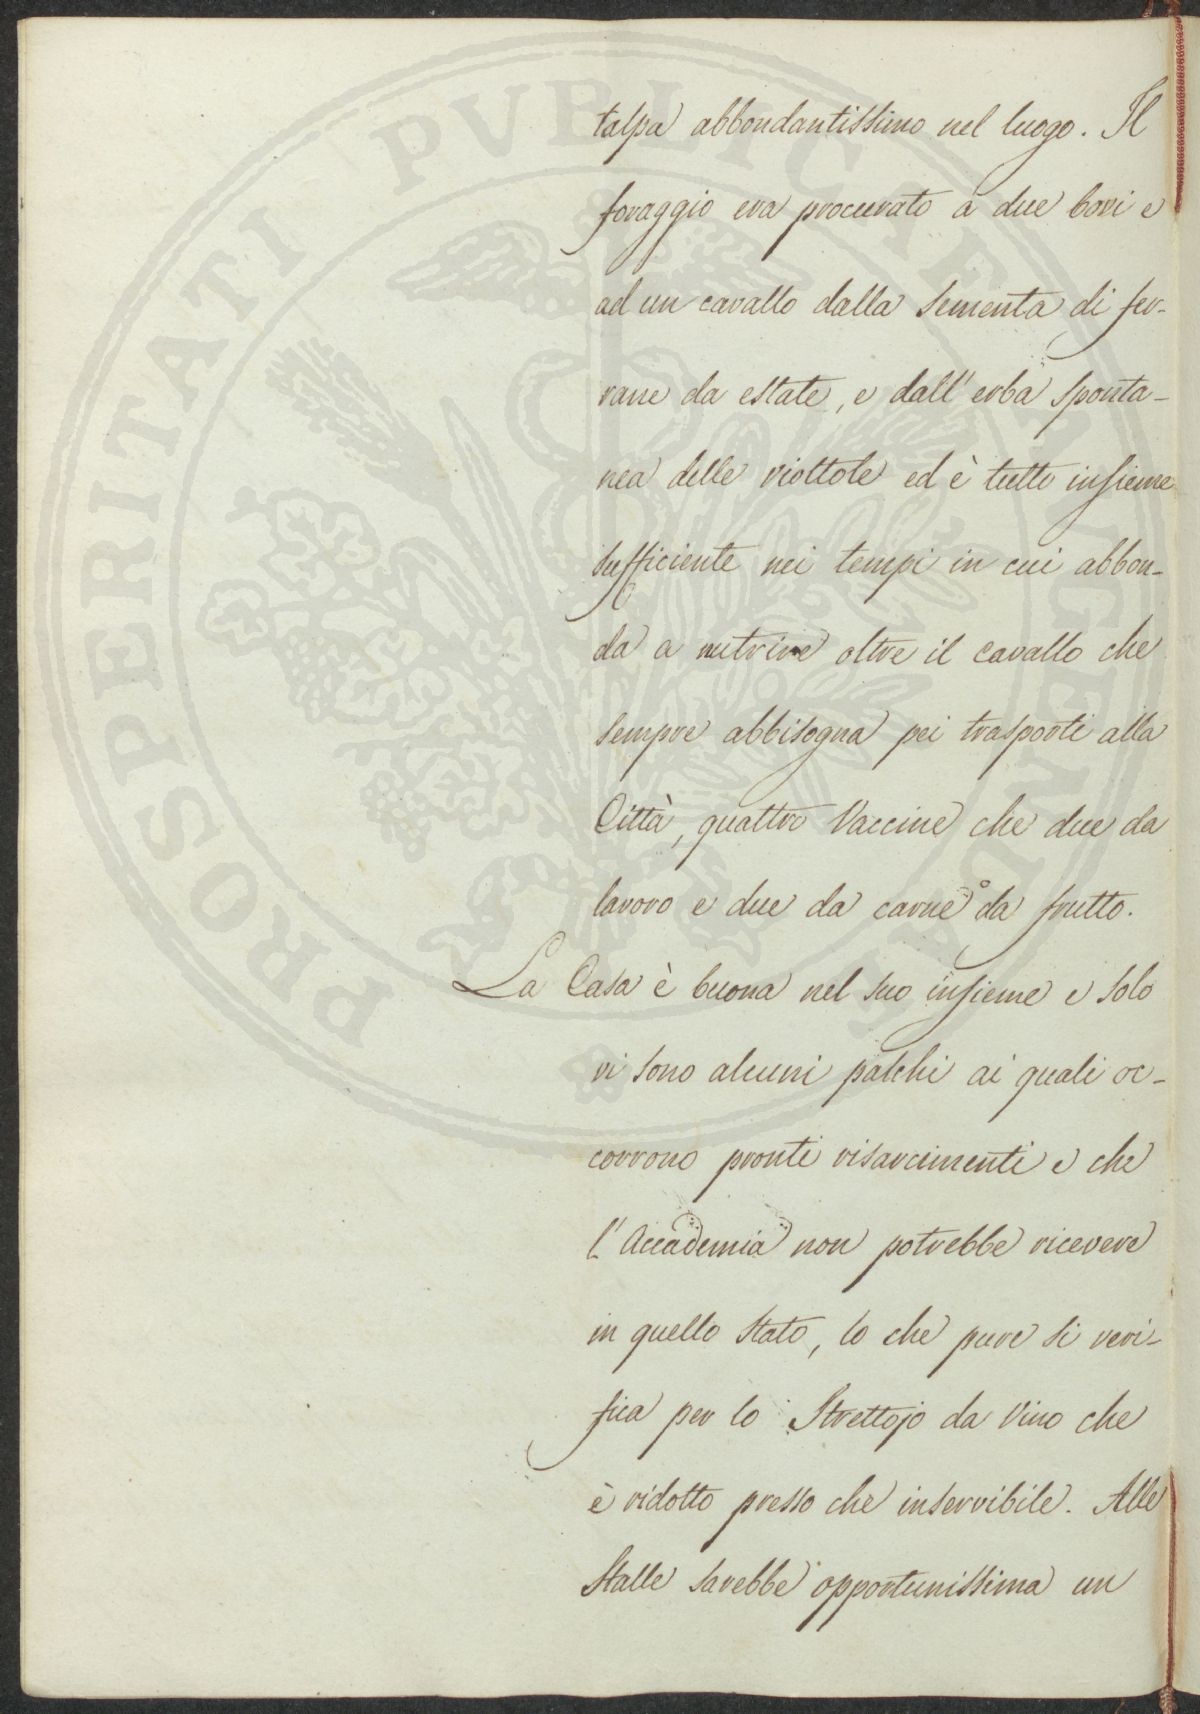 talpa abbondantissimo nel luogo. Il
foraggio era procurato a due bovi e
ad un cavallo dalla sementa di fer-
rane da estate, e dall' erba sponta-
nea delle viottole ed è tutto insieme
sufficiente nei tempi in cui abbon-
da a nutrire oltre il cavallo che
sempre abbisogna pei trasporti alla
Città, quattro Vaccine che due da
lavoro e due da carne o da frutto.
La Casa è buona nel suo insieme e solo
vi sono alcuni palchi ai quali oc-
corrono pronti risarcimenti e che
l' Accademia non potrebbe ricevere
in quello stato, lo che pure si veri-
fica per lo Strettojo da Vino che
è ridotto presso che inservibile. Alle
Stalle sarebbe opportunissima un
PROSPERITATI PVBLICAE AVGENDAE